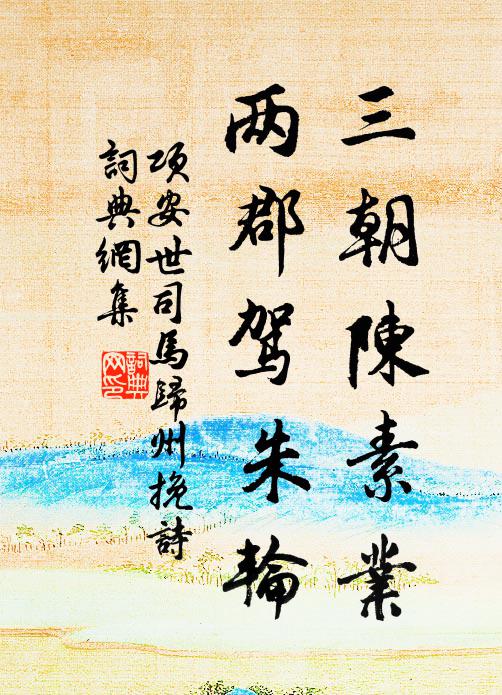 三朝陳素業
两郡駕朱輪
項安世司馬歸州挽詩
詞典網集
詞典
网印